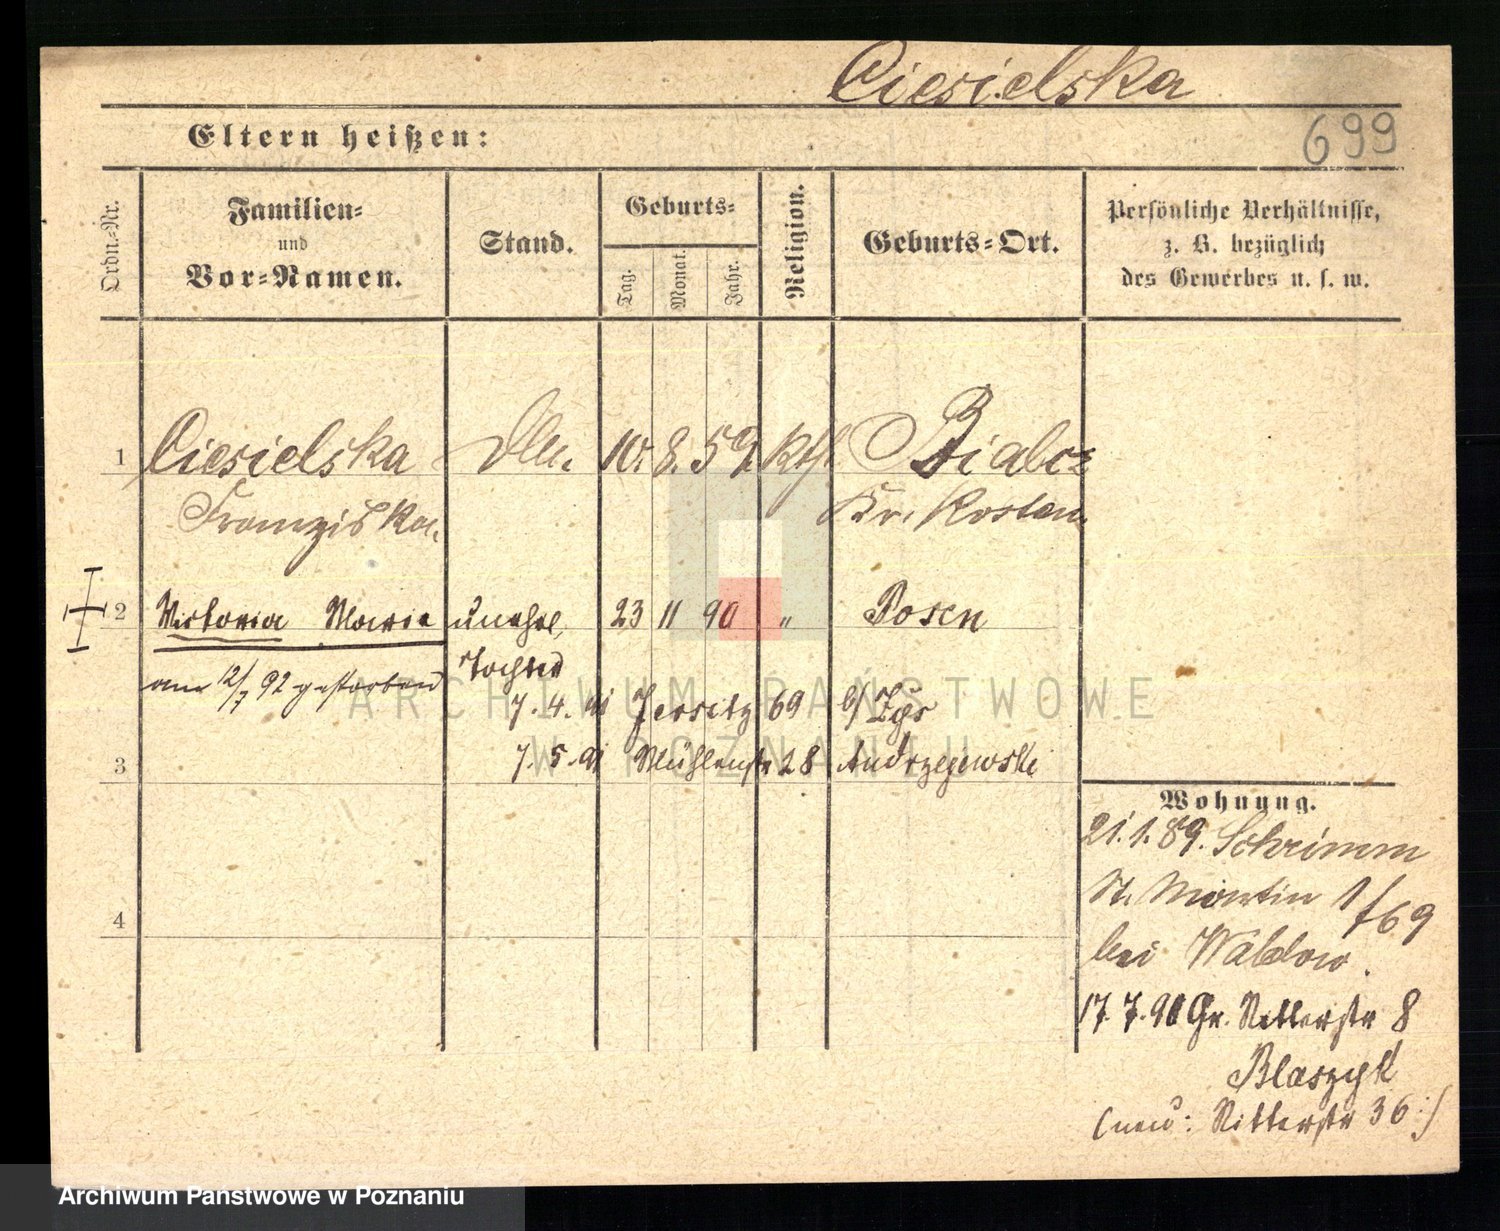 Ciesielska
699
Eltern heißen:
Ordn.-Nr.
Familien-
und
Vor-Namen.
Stand.
Geburts-
Tag.
Monat.
Jahr.
Religion.
Geburts-Ort.
Persönliche Verhältnisse,
z. B. bezüglich
des Gewerbes u. s. w.
1 Ciesielska 10. 8. 59. Kth. Bialcz
Franziska Kr. Kosten
2 Victoria Marie unehel. 23 11 90 " Posen
Tochter
am 12/7 92 gestorben
7. 4. 91 Jersitz 69 b/ Zys
3 7. 5. 91 Mühlenstr 28 Andrzejewski
4
Wohnung.
21.1.89. Schrimm
St. Martin 1/69
bei Waldow.
17.7.90 Gr. Ritterstr 8
Blaszyk
(neu: Ritterstr 36:)
ARCHIWUM PAŃSTWOWE
W POZNANIU
Archiwum Państwowe w Poznaniu